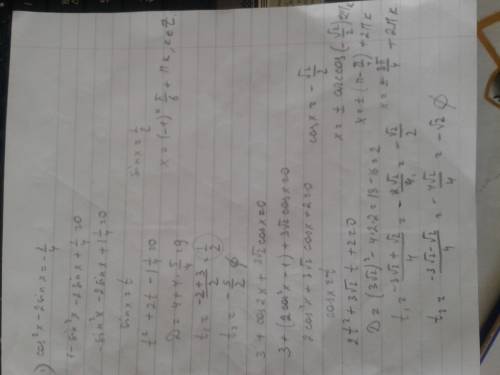 1) cos²x - 2sinx = -1/4
1 - sin²x - 2sinx + 1/4 = 0
-sin²x - 2sinx + 1 1/4 = 0
sinx = t
t² + 2t - 1 1/4 = 0
D = 4 + 4 · 5/4 = 9
t₁ = (-2+3)/2 = 1/2
t₂ = -5/2 ∅
sinx = 1/2
x = (-1)ᵏ π/6 + πk, k∈Z
3 + cos2x + 3√2 cosx = 0
3 + (2cos²x - 1) + 3√2 cosx = 0
2cos²x + 3√2 cosx + 2 = 0
cosx = t
2t² + 3√2 t + 2 = 0
D = (3√2)² - 4·2·2 = 18 - 16 = 2
t₁ = (-3√2 + √2)/4 = -2√2/4 = -√2/2
t₂ = (-3√2 - √2)/4 = -4√2/4 = -√2 ∅
cosx = -√2/2
x = ± arccos(-√2/2) + 2πk
x = ± (π - π/4) + 2πk
x = ± 3π/4 + 2πk